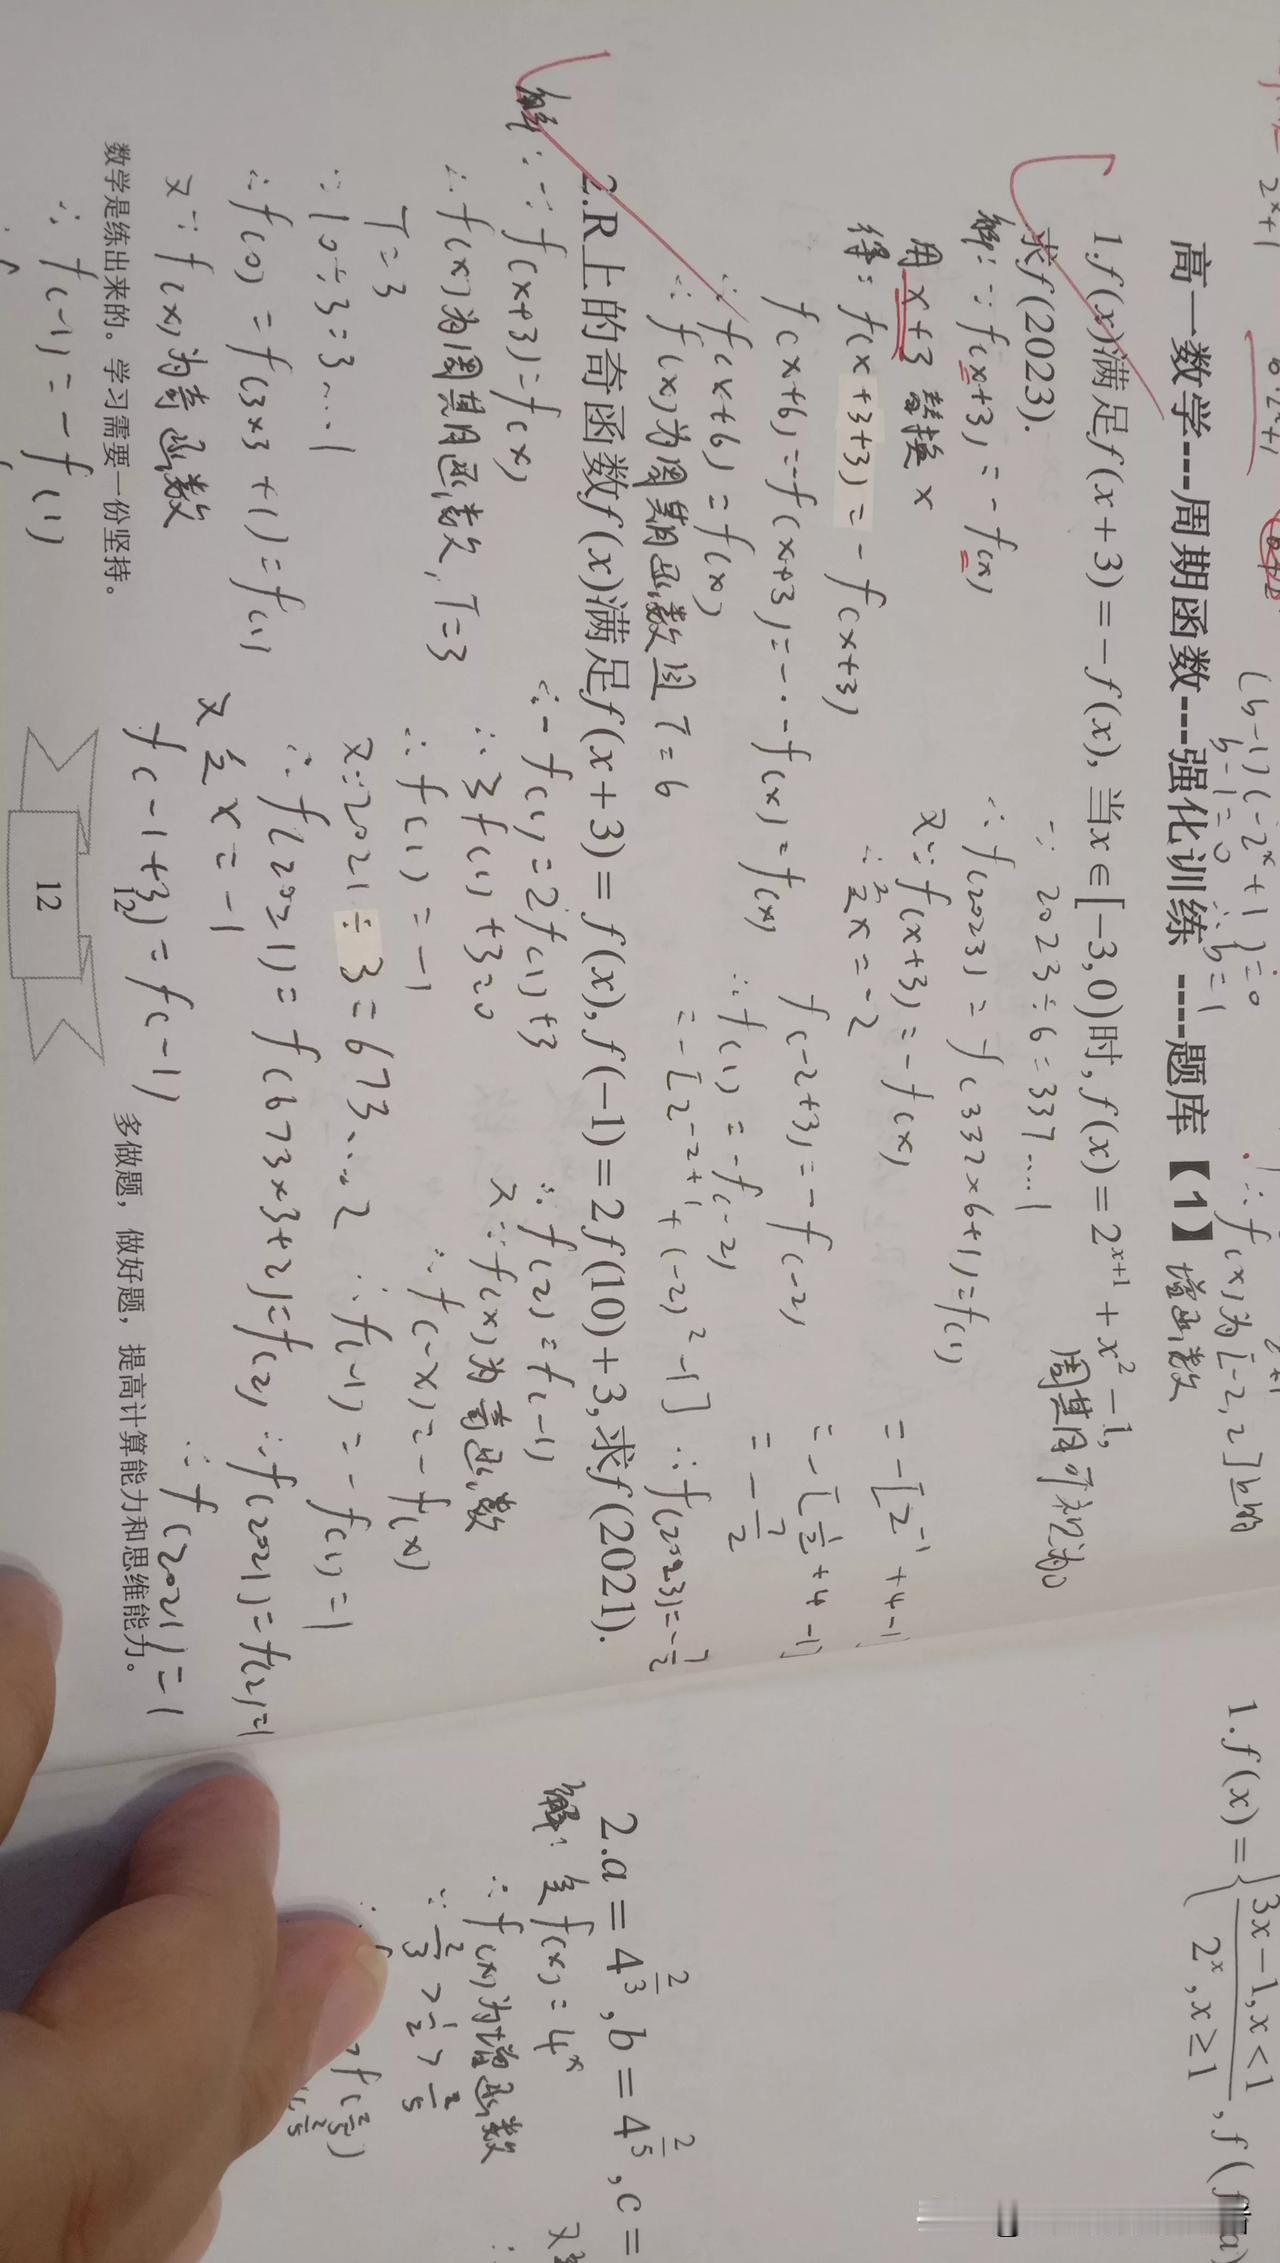 高一数学---周期函数---强化训练----题库【1】
增函数
∴f(x)为[-2,2]上的
(b-1)(-2ˣ+1)=0
b-1=0 ∴b=1
2ˣ+1
1.f(x)满足f(x+3)=-f(x),当x∈[-3,0)时,f(x)=2ˣ⁺¹+x²-1,
求f(2023).
周期可视为0
解:∵f(x+3)=-f(x)
用x+3替换x
得:f(x+3+3)=-f(x+3)
f(x+6)=-f(x+3)=-·-f(x)=f(x)
∴f(x+6)=f(x)
∴f(x)为周期函数且T=6
∵2023÷6=337……1
∴f(2023)=f(337×6+1)=f(1)
又∵f(x+3)=-f(x)
∴令x=-2
f(-2+3)=-f(-2)
∴f(1)=-f(-2)
=-[2⁻²⁺¹+(-2)²-1]
=-[2⁻¹+4-1]
=-[1/2+4-1]
=-7/2
∴f(2023)=-7/2
2.R上的奇函数f(x)满足f(x+3)=f(x),f(-1)=2f(10)+3,求f(2021).
解:∵f(x+3)=f(x)
∴f(x)为周期函数,T=3
T=3
∵10÷3=3…1
∴f(10)=f(3×3+1)=f(1)
又∵f(x)为奇函数
∴f(-1)=-f(1)
∴-f(1)=2f(1)+3
∴3f(1)+3=0
∴f(1)=-1
又∵2021÷3=673…2
∴f(2021)=f(673×3+2)=f(2)
又令x=-1
f(-1+3)=f(-1)
∴f(2)=f(-1)
又∵f(x)为奇函数
∴f(-x)=-f(x)
∴f(-1)=-f(1)=1
∴f(2021)=f(2)=1
∴f(2021)=1
数学是练出来的。学习需要一份坚持。
12
多做题，做好题，提高计算能力和思维能力。
1.f(x)={3x-1,x<1
2ˣ,x≥1
,f(f(a)
2.a=4^(2/3),b=4^(2/5),c=
解:令f(x)=4ˣ
∴f(x)为增函数
∵2/3>1/2>2/5